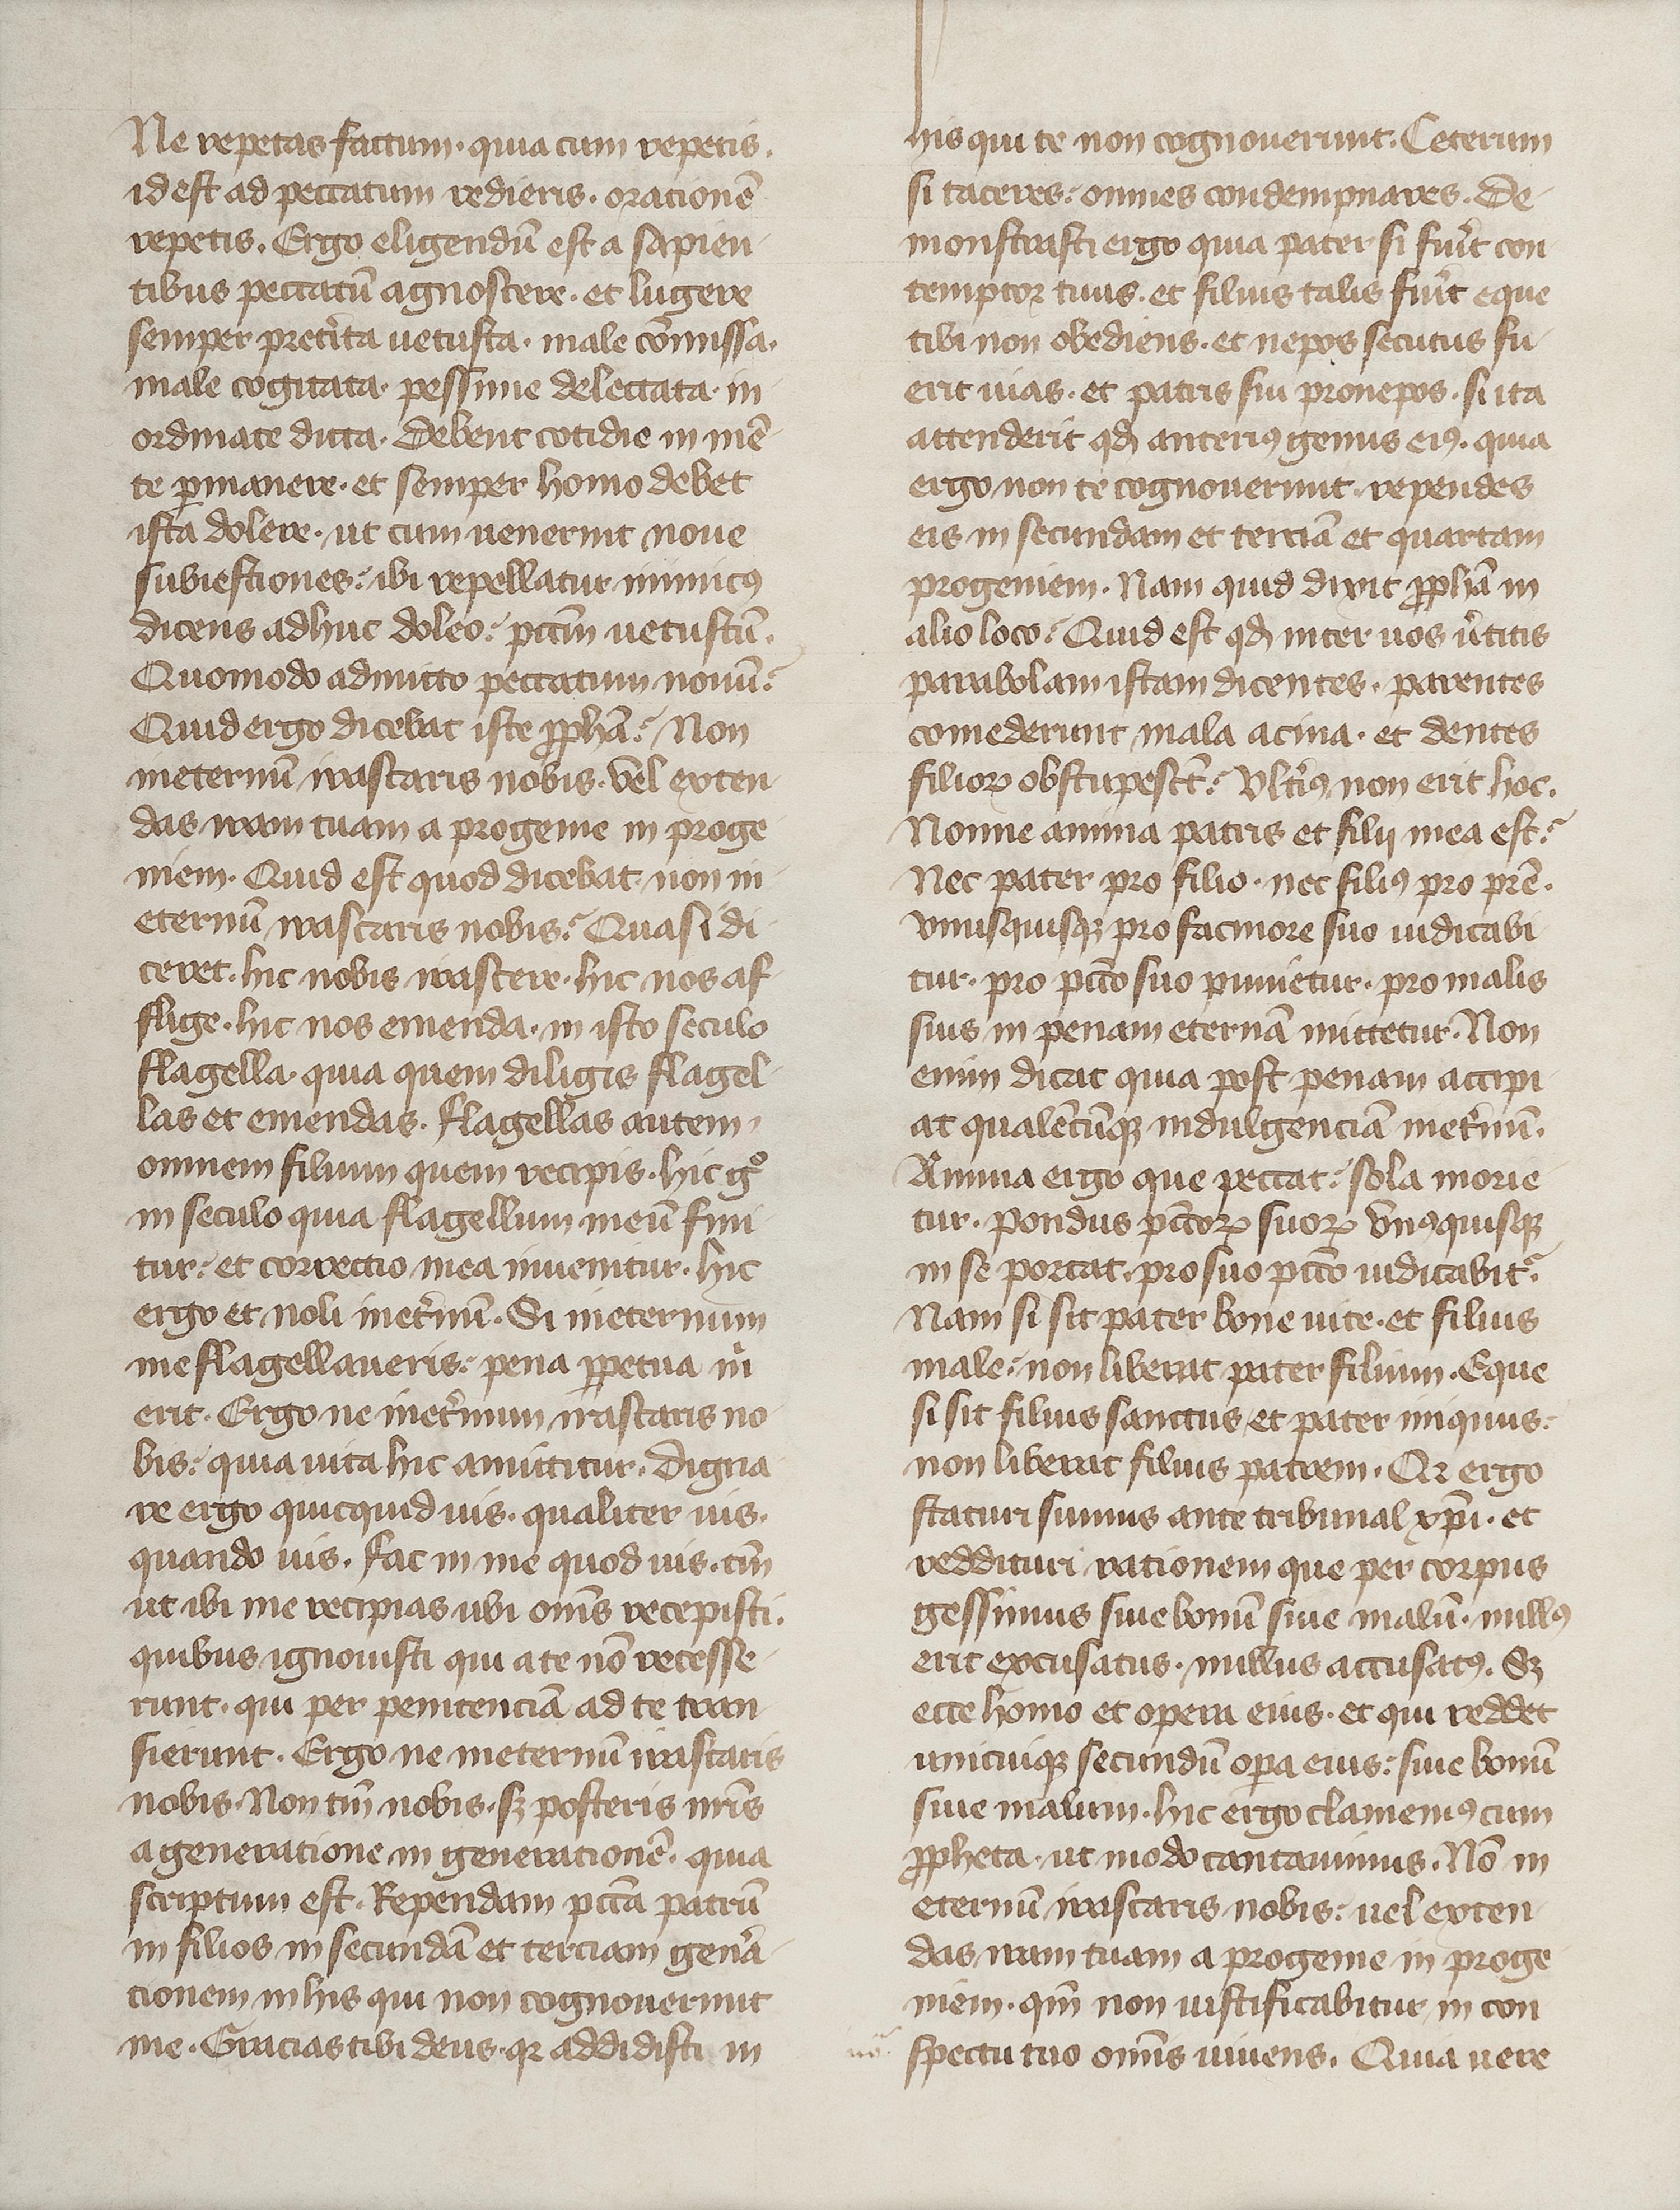 Ne repetas factum · quia cum repetis .
id est ad peccatum redieris · orationē
repetis . Ergo eligendū est a sapien-
tibus peccatū agnoscere · et lugere
semper pret̾ita uetusta · male cōmissa ·
male cogitata · pessime delectata · in-
ordinate dicta · Debent cotidie in mē-
te ꝑmanere · et semper homo debet
ista dolere · ut cum uenerint noue
subiestiones : ibi repellatur inimicꝰ
dicens adhuc doleo : pcc̄m uetustū .
Quomodo admitto peccatum nouū :
Quid ergo dicebat iste ꝓph̄a : Non
ineternū irascaris nobis · vel exten-
das iram tuam a progenie in proge-
niem · Quid est quod dicebat · non in-
eternū irascaris nobis : Quasi di-
ceret · hic nobis irascere · hic nos af-
flige · hic nos emenda · in isto seculo
flagella · quia quem diligis flagel-
las et emendas . flagellas autem
omnem filium quem recipis · hic gͦ
in seculo quia flagellum meū fini-
tur : et correctio mea inuenitur · hic
ergo et noli inet̾nū · Si ineternum
me flagellaueris : pena ꝑpetua m̍
erit · Ergo ne inet̾num irascaris no-
bis : quia uita hic amittitur · Digna-
re ergo quicquid uis · qualiter uis ·
quando uis . fac in me quod uis · tm̄
ut ibi me recipias ubi om̄s recepisti .
quibus ignouisti qui a te nō recesse-
runt · qui per penitenciā ad te tran-
sierunt . Ergo ne ineternū irascaris
nobis · Non tm̄ nobis · sꝫ posteris nr̄is
a generatione in generationē · quia
scriptum est · Rependam pcc̄a patrū
in filios in secundā et terciam gen̾a-
cionem in his qui non cognouerunt
me · Gracias tibi deus · qꝛ addidisti in
his qui te non cognouerunt · Ceterum
si taceres : omnes condempnares . De-
monstrasti ergo quia pater si fu̾it con
temptor tuus · et filius talis fu̾it eque
tibi non obediens · et nepos secutus fu-
erit uias · et patris sui pronepos · si ita
attenderit qđ anteriꝰ genus eiꝰ · quia
ergo non te cognouerunt · rependes
eis in secundam et terciā et quartam
progeniem · Nam quid dixit ꝓph̄ā in
alio loco : Quid est qđ inter uos u̾titis
parabolam istam dicentes · parentes
comederunt mala acina · et dentes
filioꝝ obstupesc̄t : Vlt̾iꝰ non erit hoc .
Nonne anima patris et filii mea est :
Nec pater pro filio · nec filiꝰ pro pr̄e ·
vnusquisqꝫ pro facinore suo iudicabi
tur · pro pcc̄o suo punietur · pro malis
suis in penam eternā mittetur · Non
enim dicat quia post penam accipi-
at qualēcūqꝫ indulgenciā inet̾nū ·
Anima ergo que peccat : sola morie
tur · pondus pcc̄oꝝ suoꝝ vnꝰquisqꝫ
in se portat · pro suo pcc̄o iudicabit̾ ·
Nam si sit pater bone uite · et filius
male : non liberat pater filium · Eque
si sit filius sanctus et pater iniquus :
non liberat filius patrem · Qꝛ ergo
staturi sumus ante tribunal xp̄i · et
reddituri rationem que per corpus
gessimus siue bonū siue malū · nullꝰ
erit excusatus · nullus accusatꝰ . Sꝫ
ecce homo et opera eius · et qui reddet
unicuiqꝫ secundū oꝑa eius : siue bonū
siue malum · hic ergo clamemꝰ cum
ꝓpheta · ut modo cantauimus . Nō in
eternū irascaris nobis : uel exten-
das iram tuam a progenie in proge-
niem · qm̄ non iustificabitur in con
spectu tuo om̄s uiuens . Quia uere